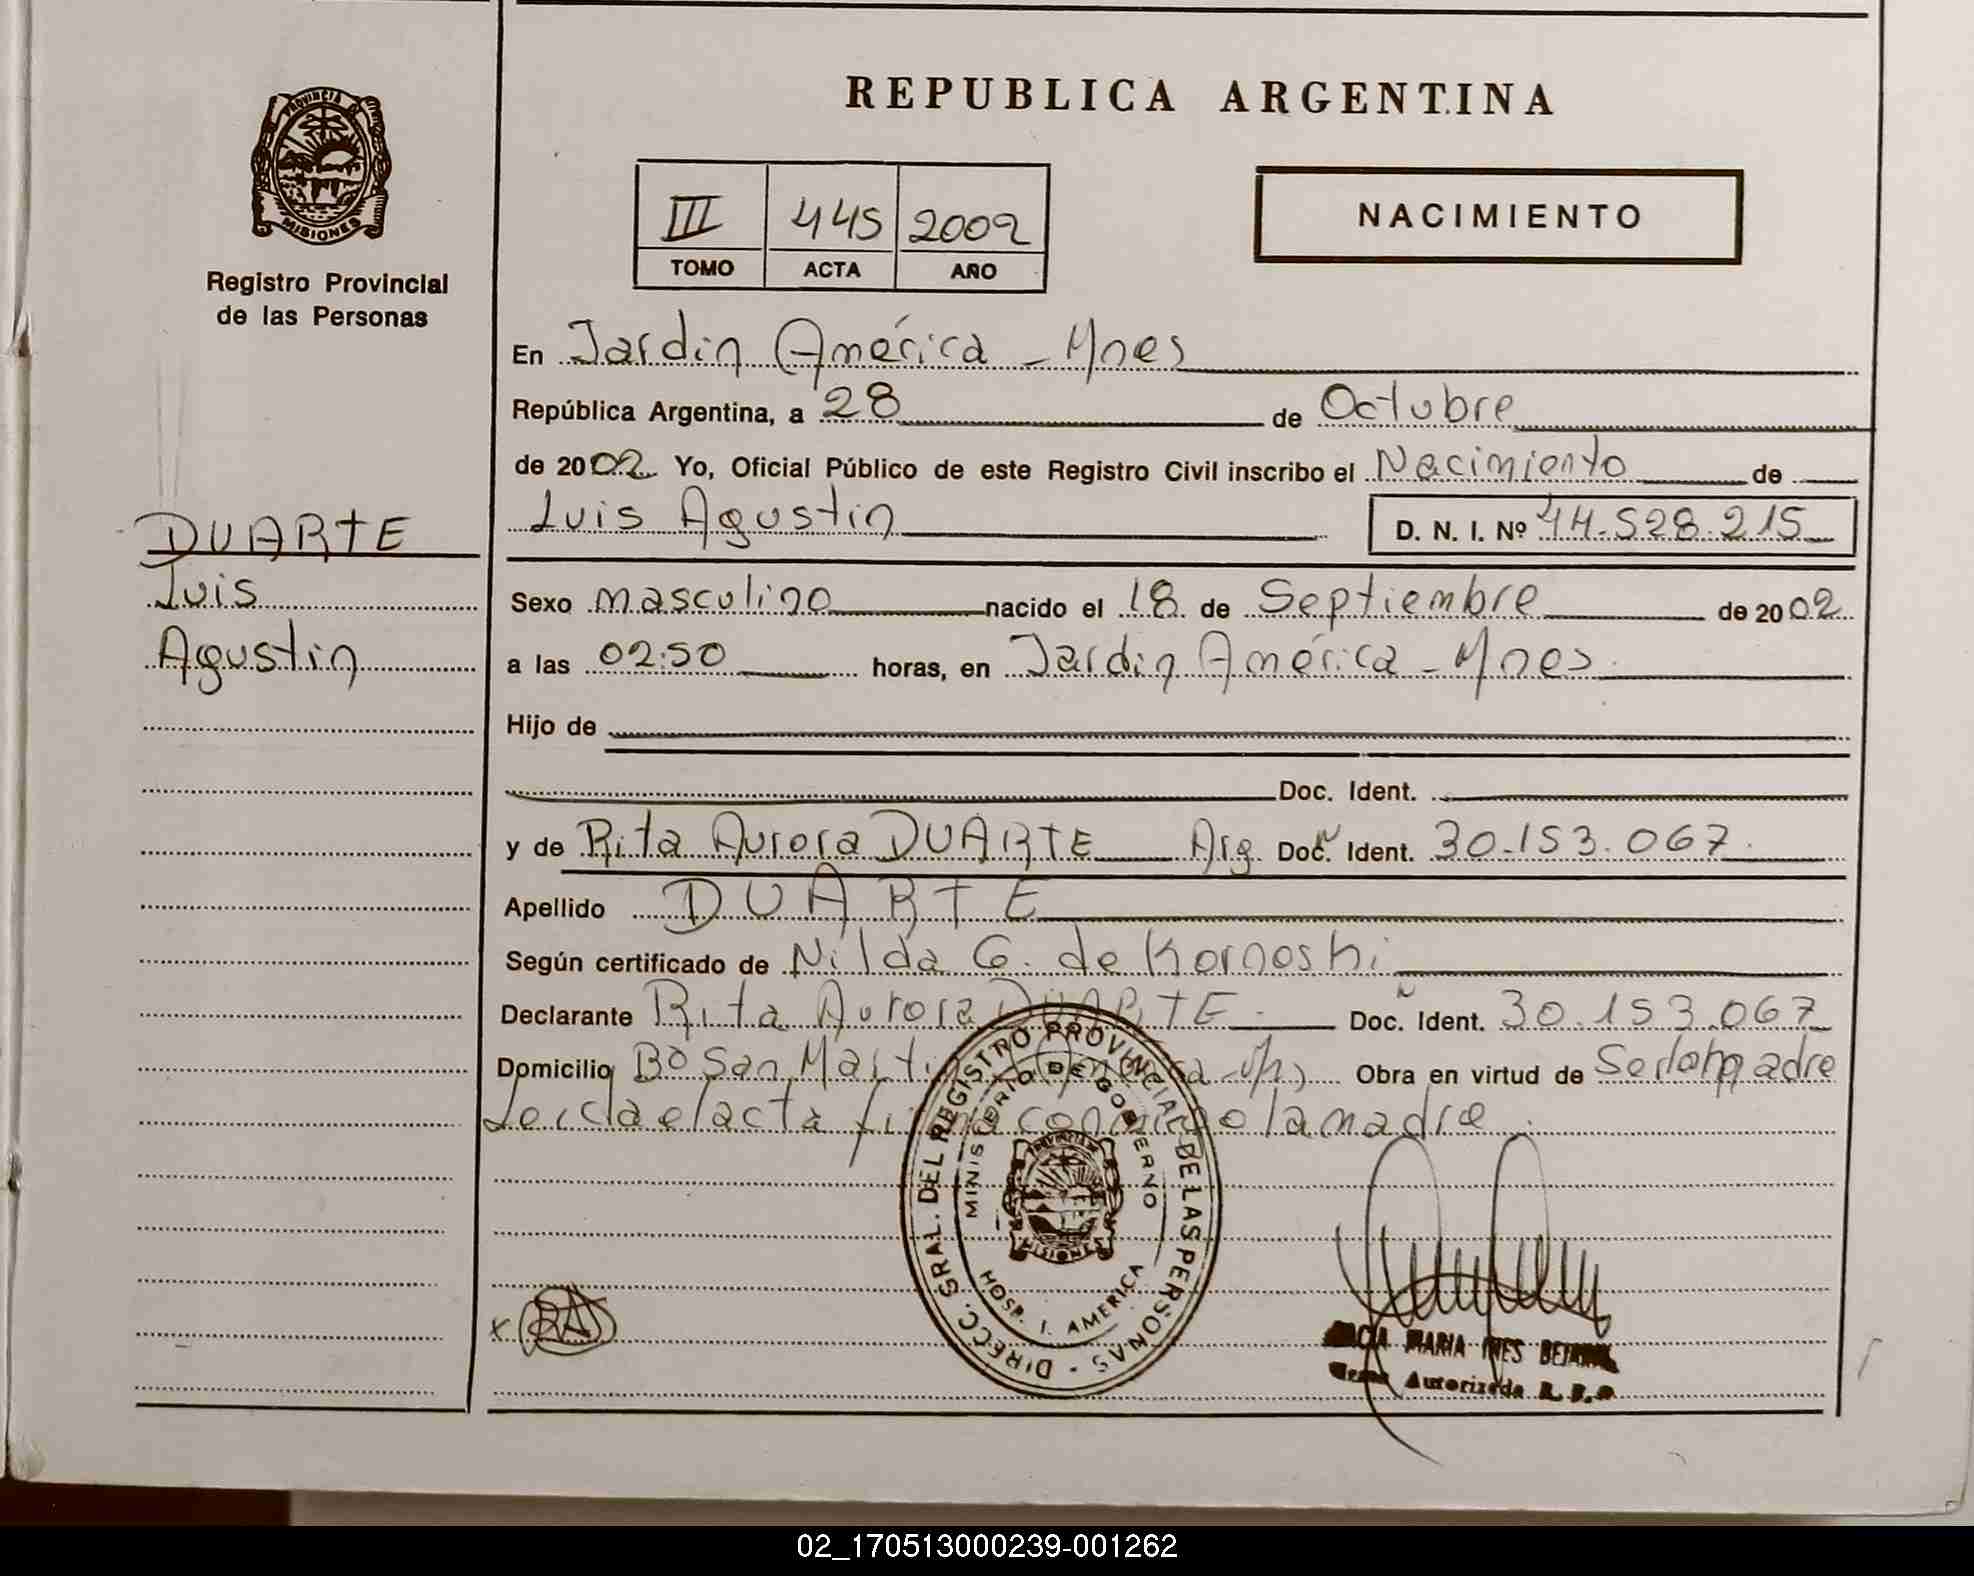 PROVINCIA
MISIONES
Registro Provincial
de las Personas
DUARTE
Luis
Agustin
REPUBLICA ARGENTINA
III 445 2002
TOMO ACTA AÑO
NACIMIENTO
En Jardin América - Mnes
República Argentina, a 28 de Octubre
de 2002 Yo, Oficial Público de este Registro Civil inscribo el Nacimiento de
Luis Agustin D. N. I. Nº 44.528.215
Sexo masculino nacido el 18 de Septiembre de 2002
a las 02:50 horas, en Jardin América - Mnes
Hijo de
Doc. Ident.
y de Rita Aurora DUARTE Arg. Doc. Ident. 30.153.067
Apellido DUARTE
Según certificado de Nilda G. de Kornoski
Declarante Rita Aurora DUARTE Doc. Ident. 30.153.067
Domicilio Bº San Martin Obra en virtud de Ser la madre
Leida el acta firma conmigo la madre
DIRECC. GRAL. DEL REGISTRO PROVINCIAL DE LAS PERSONAS
MINISTERIO DE GOBIERNO
PROVINCIA DE
MISIONES
HOSP. J. AMERICA
MARIA INES
Autorizada
02_170513000239-001262